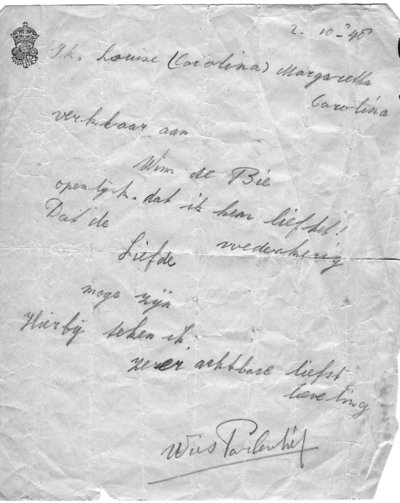 2-10-'45
Ik, Louise (Carolina) Margaretha
Carolina
verklaar aan
Wim de Bie
openlijk. dat ik hem liefheb!
Dat de wederkerig
Liefde
moge zijn
Hierbij teken ik
zeer achtbare liefst
leveling
Wies